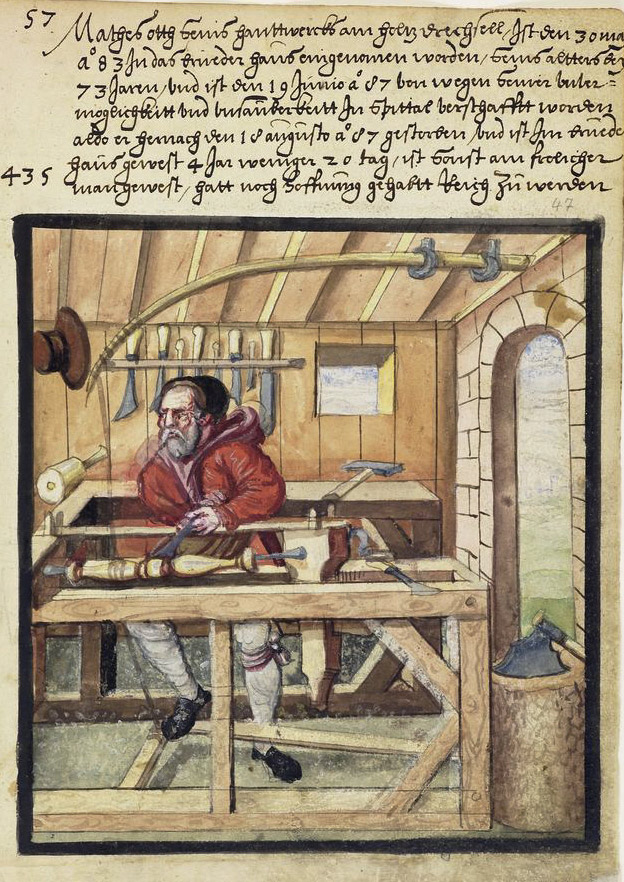 57
Mathes otth seines hanttwercks ain holtz drechsell, Ist den 30 ma
aº 83 In das brueder haus eingenomen worden, seines altters bey
73 Jaren, vnd ist den 19 Junio aº 87 von wegen seiner vnver=
möglichkeitt vnd vnsauberkeitt In Spittal verschafftt worden
aldo er hernach den 18 augusto aº 87 gestorben, vnd ist Im bruede
haus gewest 4 Jar weniger 20 tag, ist sonst ain frölicher
435 man gewest, hatt noch hoffnung gehabtt Reich zu werden
47